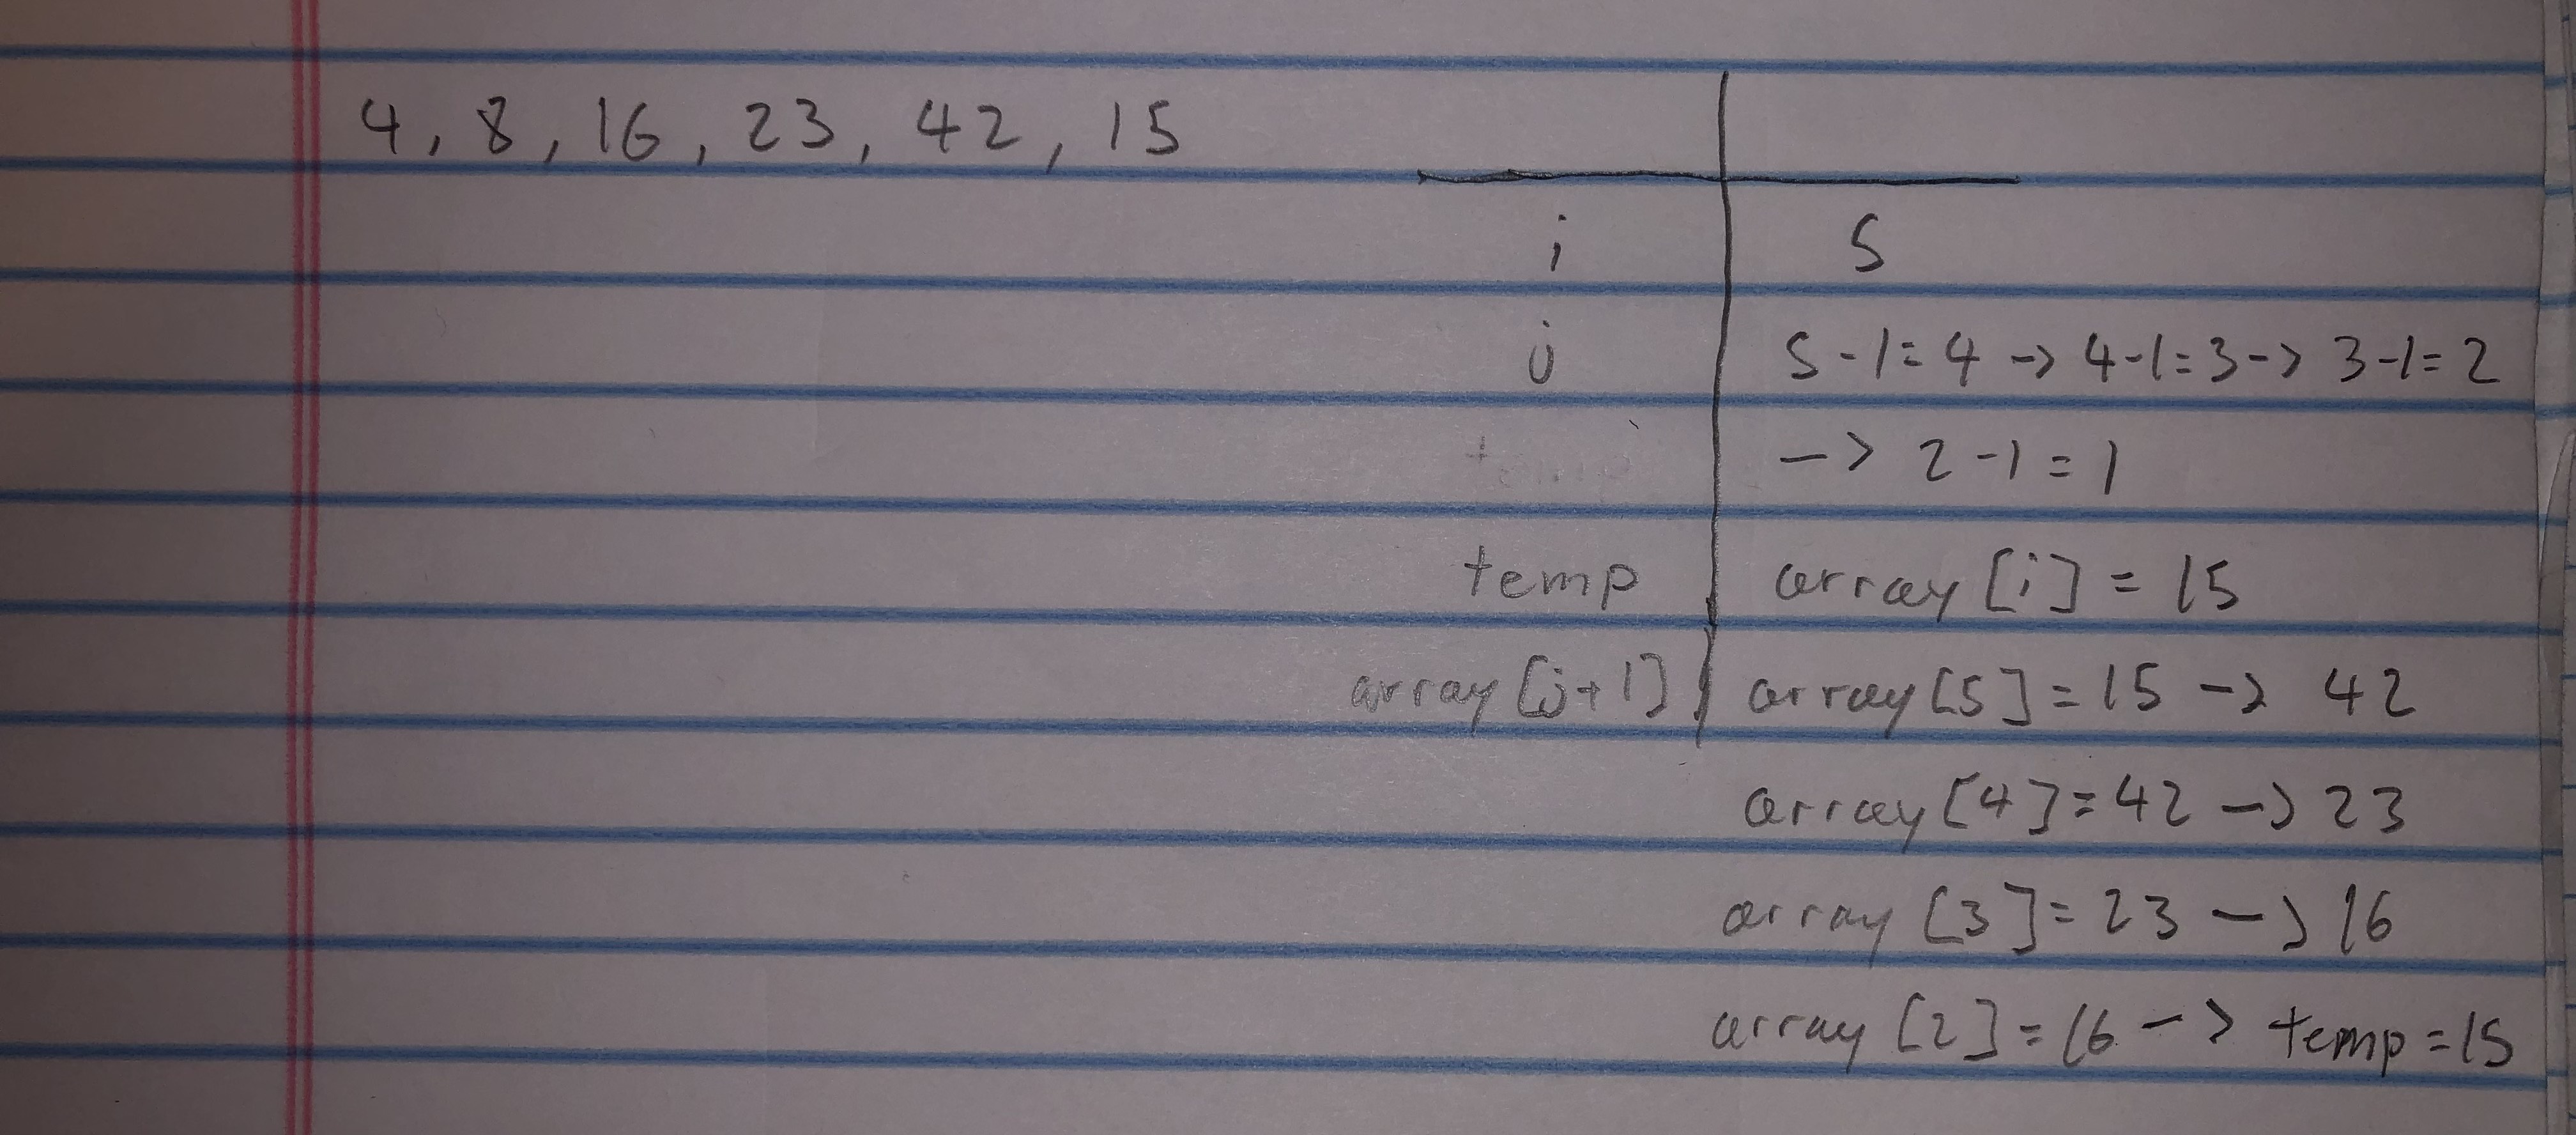 4, 8, 16, 23, 42, 15
i 5
j 5-1=4 -> 4-1=3 -> 3-1=2
-> 2-1=1
temp array[i] = 15
array[j+1] array[5]=15 -> 42
array[4]=42 -> 23
array[3]=23 -> 16
array[2]=16 -> temp=15